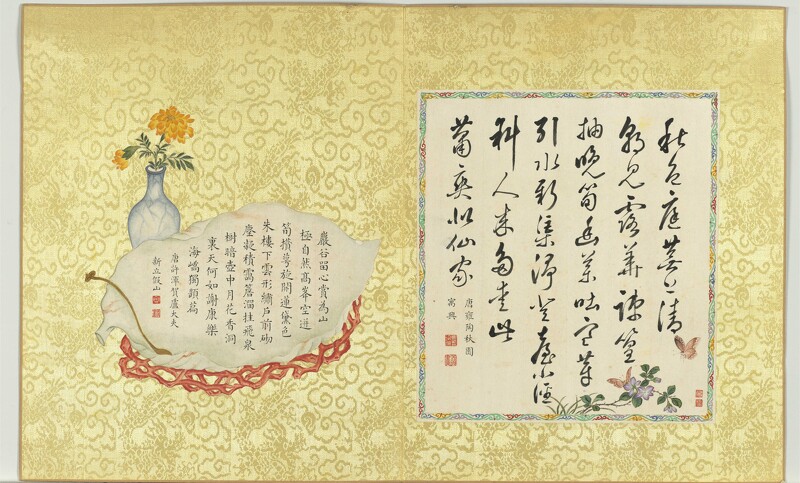 秋色庭蕪上清
朝見露華疎篁
抽晚筍幽藥吐寒芽
引水新渠淨登臺小徑
斜人來多愛此
蕭爽似仙家
唐雍陶秋園
寓興
巖谷留心賞為山
極自然高峯空迸
筍攢萼旋開蓮黛色
朱樓下雲形繡戶前砌
塵凝積靄簷溜挂飛泉
樹暗壺中月花香洞
裏天何如謝康樂
海嶠獨題篇
唐許渾賀盧大夫
新立假山